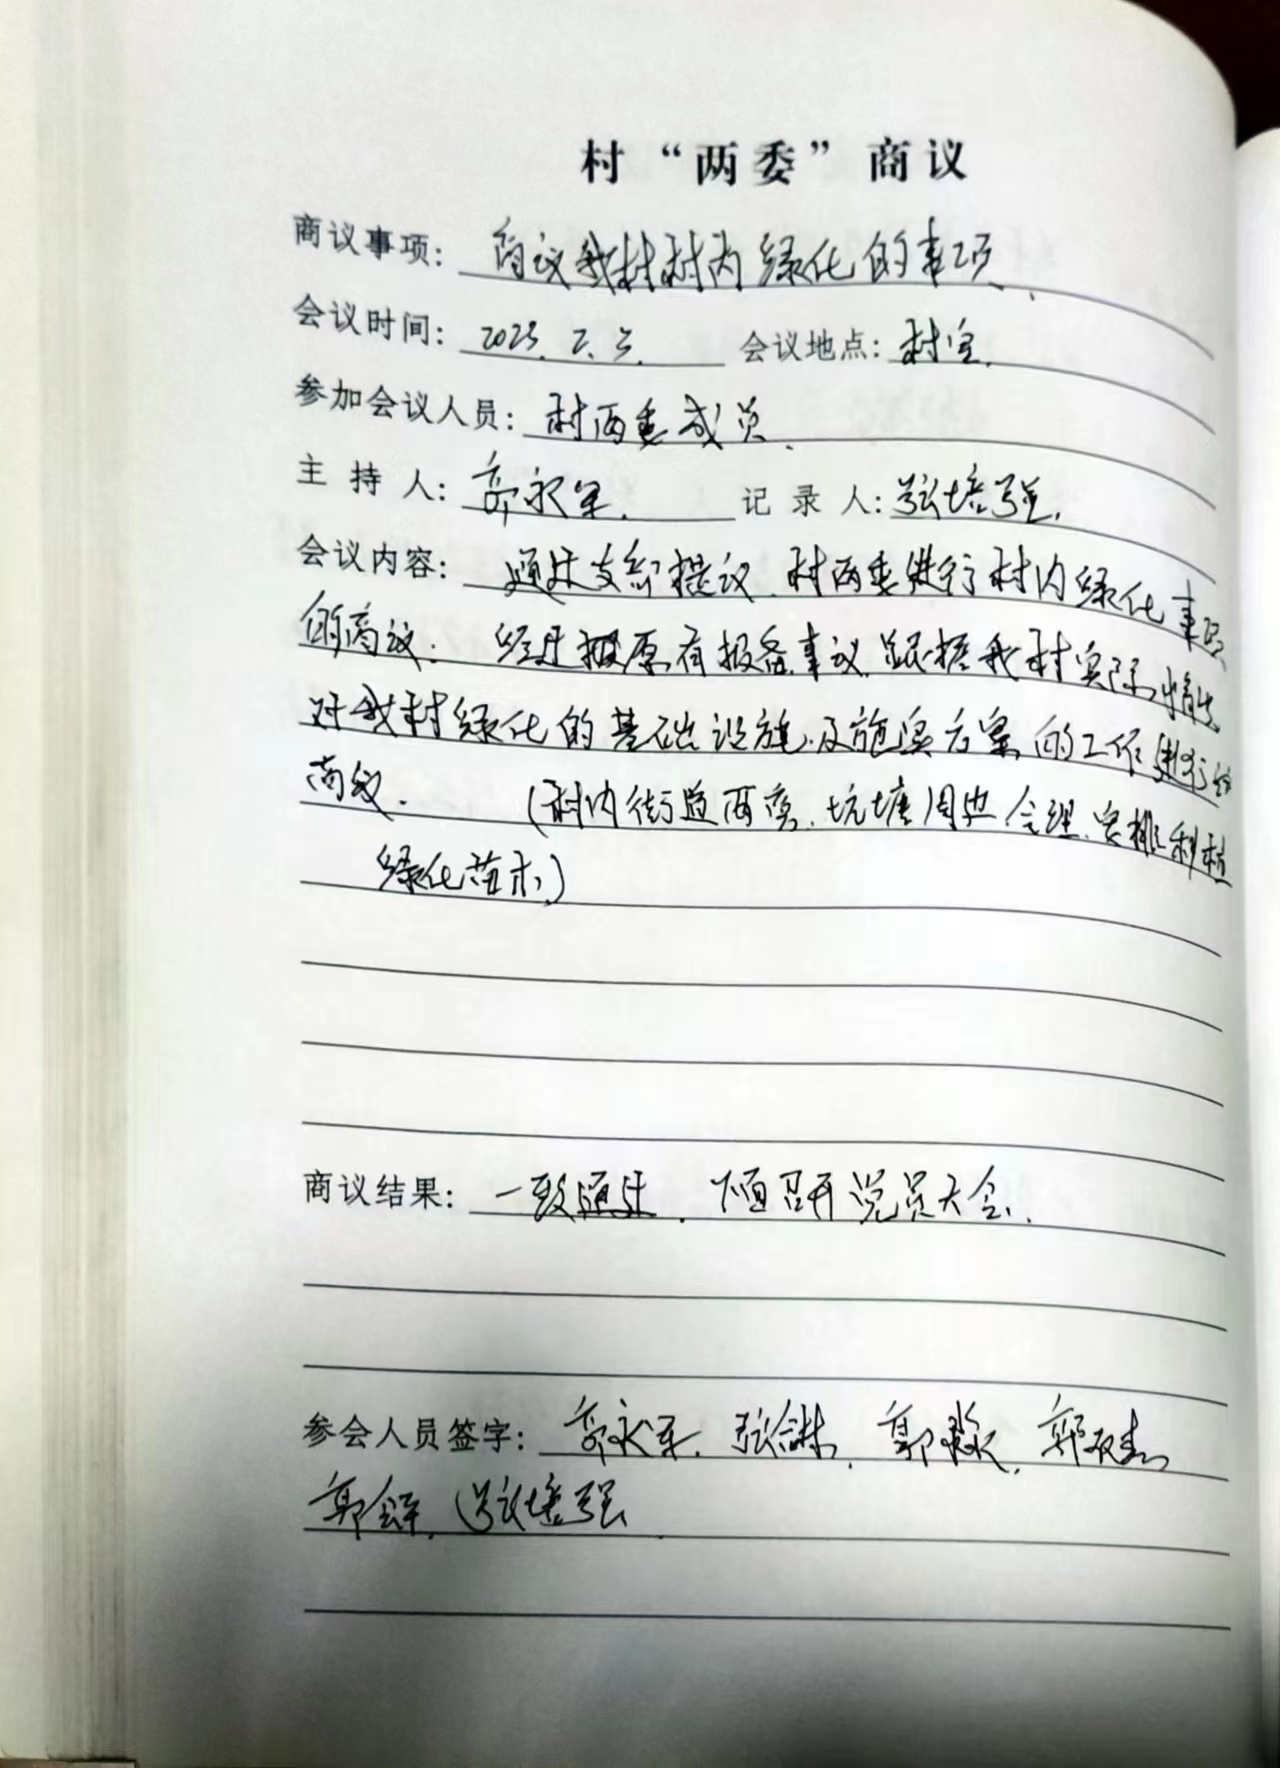 村“两委”商议
商议事项: 商议我村村内绿化的事项.
会议时间: 2023. 2. 3. 会议地点: 村室.
参加会议人员: 村两委成员.
主 持 人: 郭永军. 记 录 人: 张培强.
会议内容: 通过支部提议.村两委进行村内绿化事项
的商议. 经过 原有报备事议.跟据我村实际情况
对我村绿化的基础设施.及施实方案的工作进行
商议. (村内街道两旁.坑塘周边.合理.安排种植
绿化苗木.)
商议结果: 一致通过. 下面召开党员大会.
参会人员签字: 郭永军. 郭 郭
郭 张培强